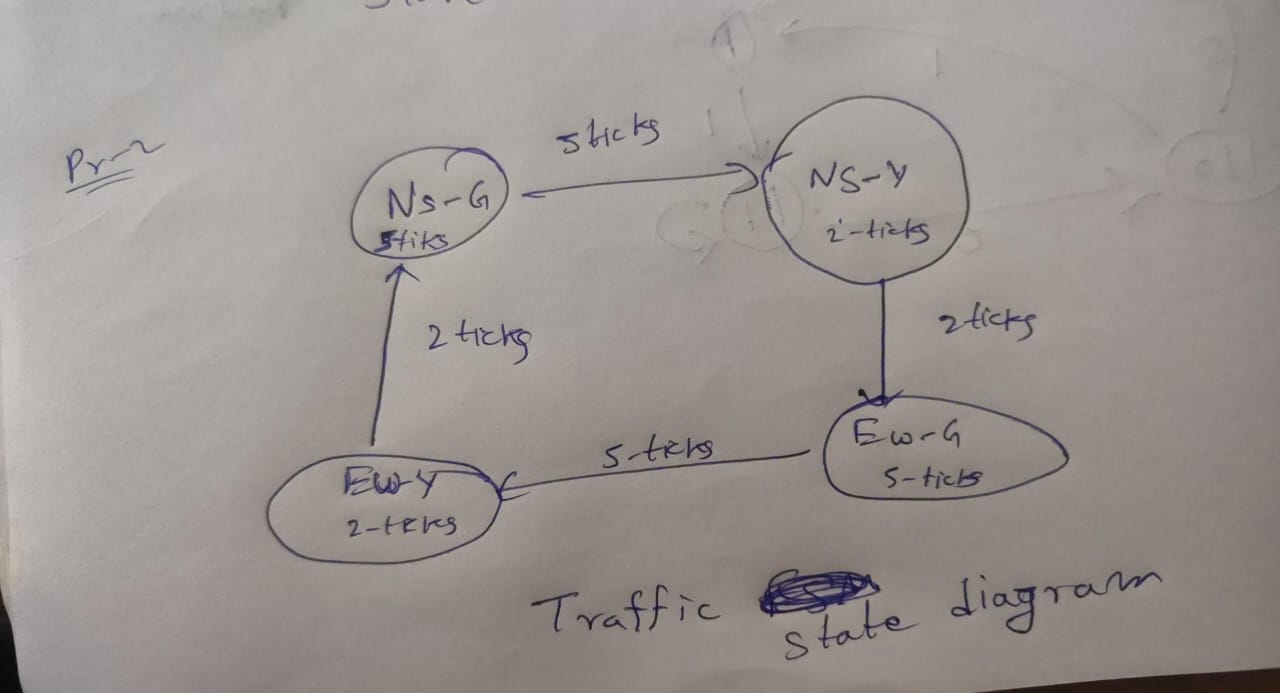 Pr-2
5 ticks
NS-G
5tiks
NS-Y
2-ticks
2 ticks
2 ticks
EW-G
5-ticks
5-ticks
EW-Y
2-ticks
Traffic state diagram